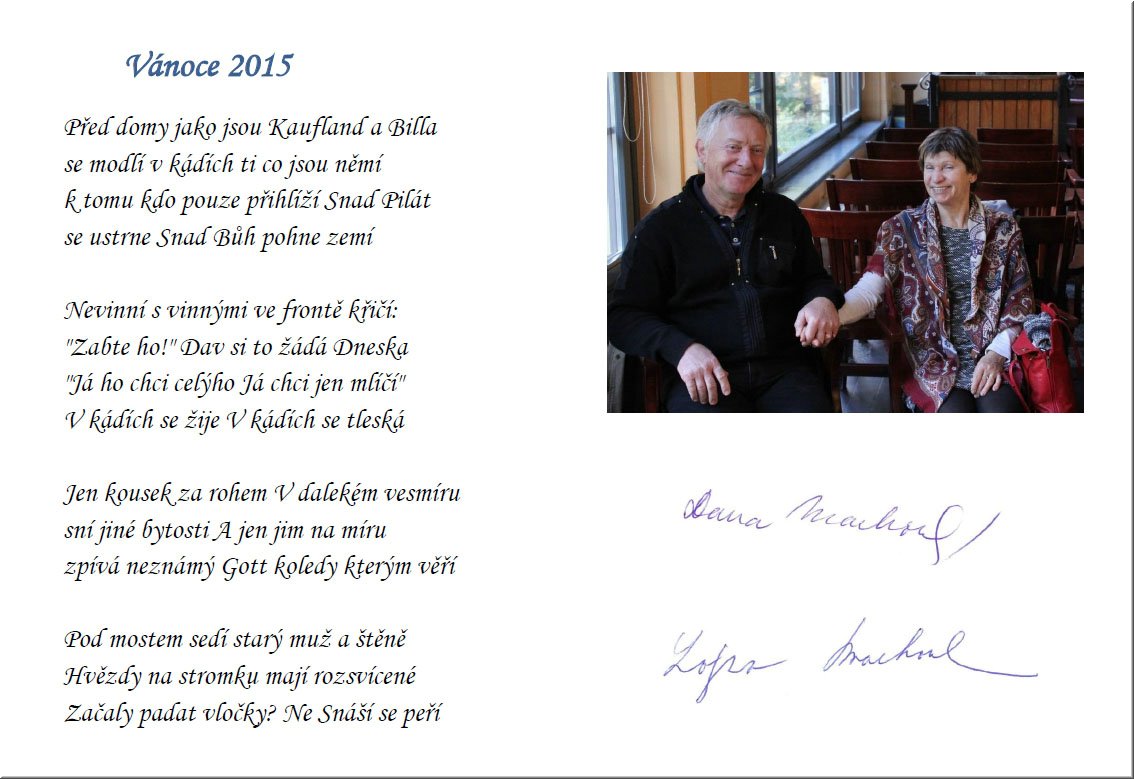 Vánoce 2015
Před domy jako jsou Kaufland a Billa
se modlí v kádích ti co jsou němí
k tomu kdo pouze přihlíží Snad Pilát
se ustrne Snad Bůh pohne zemí
Nevinní s vinnými ve frontě křičí:
"Zabte ho!" Dav si to žádá Dneska
"Já ho chci celýho Já chci jen mlíčí"
V kádích se žije V kádích se tleská
Jen kousek za rohem V dalekém vesmíru
sní jiné bytosti A jen jim na míru
zpívá neznámý Gott koledy kterým věří
Pod mostem sedí starý muž a štěně
Hvězdy na stromku mají rozsvícené
Začaly padat vločky? Ne Snáší se peří
Dana